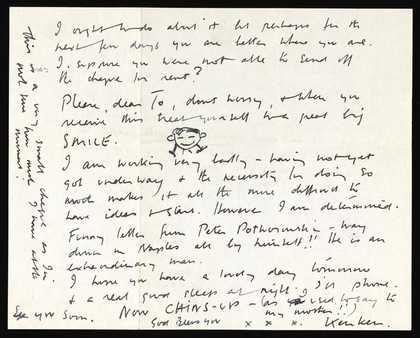 I ought to do about it but perhaps for the
next few days you are better where you are.
I suppose you were not able to send off
the cheque for rent?
Please, dear To, dont worry, & when you
receive this treat yourself to a great big
SMILE.
I am working very badly – having not yet
got underway & the necessity for doing so
much makes it all the more difficult to
have ideas & start. However I am determined.
Funny letter from Peter Potworowski – way
down in Naples all by himself!! He is an
extraordinary man.
I hope you have a lovely day tomorrow
& a real good sleep at night. I'll phone.
Now CHINS-UP – (as I used to say to
my mother!!)
See you soon. God Bless you
x x x.
This is a very small cheque as I'm
not sure how much I have at the
moment!